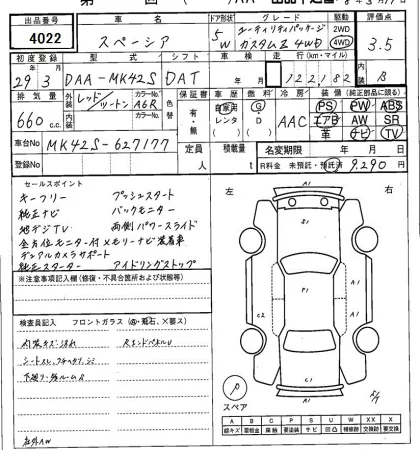 出品番号 車名 ドア形状 グレード 駆動 評価点
4022 スペーシア 5W ユーティリティパッケージ カスタムZ 4WD 2WD 4WD 3.5
初度登録 型式 シフト 車検 走行(km・マイル) 内装
29年3月 DAA-MK42S DAT 年 月 122,182 B
排気量 外装 カラーNo. 色替 保証書 車歴 燃料 冷房 装備(純正部品に限る)
660c.c. レッド/ツートン A6R 有・無 自家用 レンタ G D AAC PS PW ABS
内装 カラーNo. エアB AW SR
革 ナビ TV
車台No MK42S-627177 定員 積載量 名変期限 年 月 日
登録No 人 t R料金 未預託・預託済 9,290円
セールスポイント 左 右
キーフリー プッシュスタート
純正ナビ バックモニター
地デジTV 両側パワースライド
全方位モニター付メモリーナビ装着車
デュアルカメラサポート
純正スターター アイドリングストップ
※注意事項記入欄(修復・不具合箇所および状態等)
検査員記入 フロントガラス
内装キズ・汚れ Rエンドパネルu
社外AW
A1
S1
P1
A1
C2
P1
A1
C1
A1
P
スペア
A B C P S U W X XX
線キズ 腐蝕 要塗装 サビ 凹凸 補修跡 交換跡 要交換